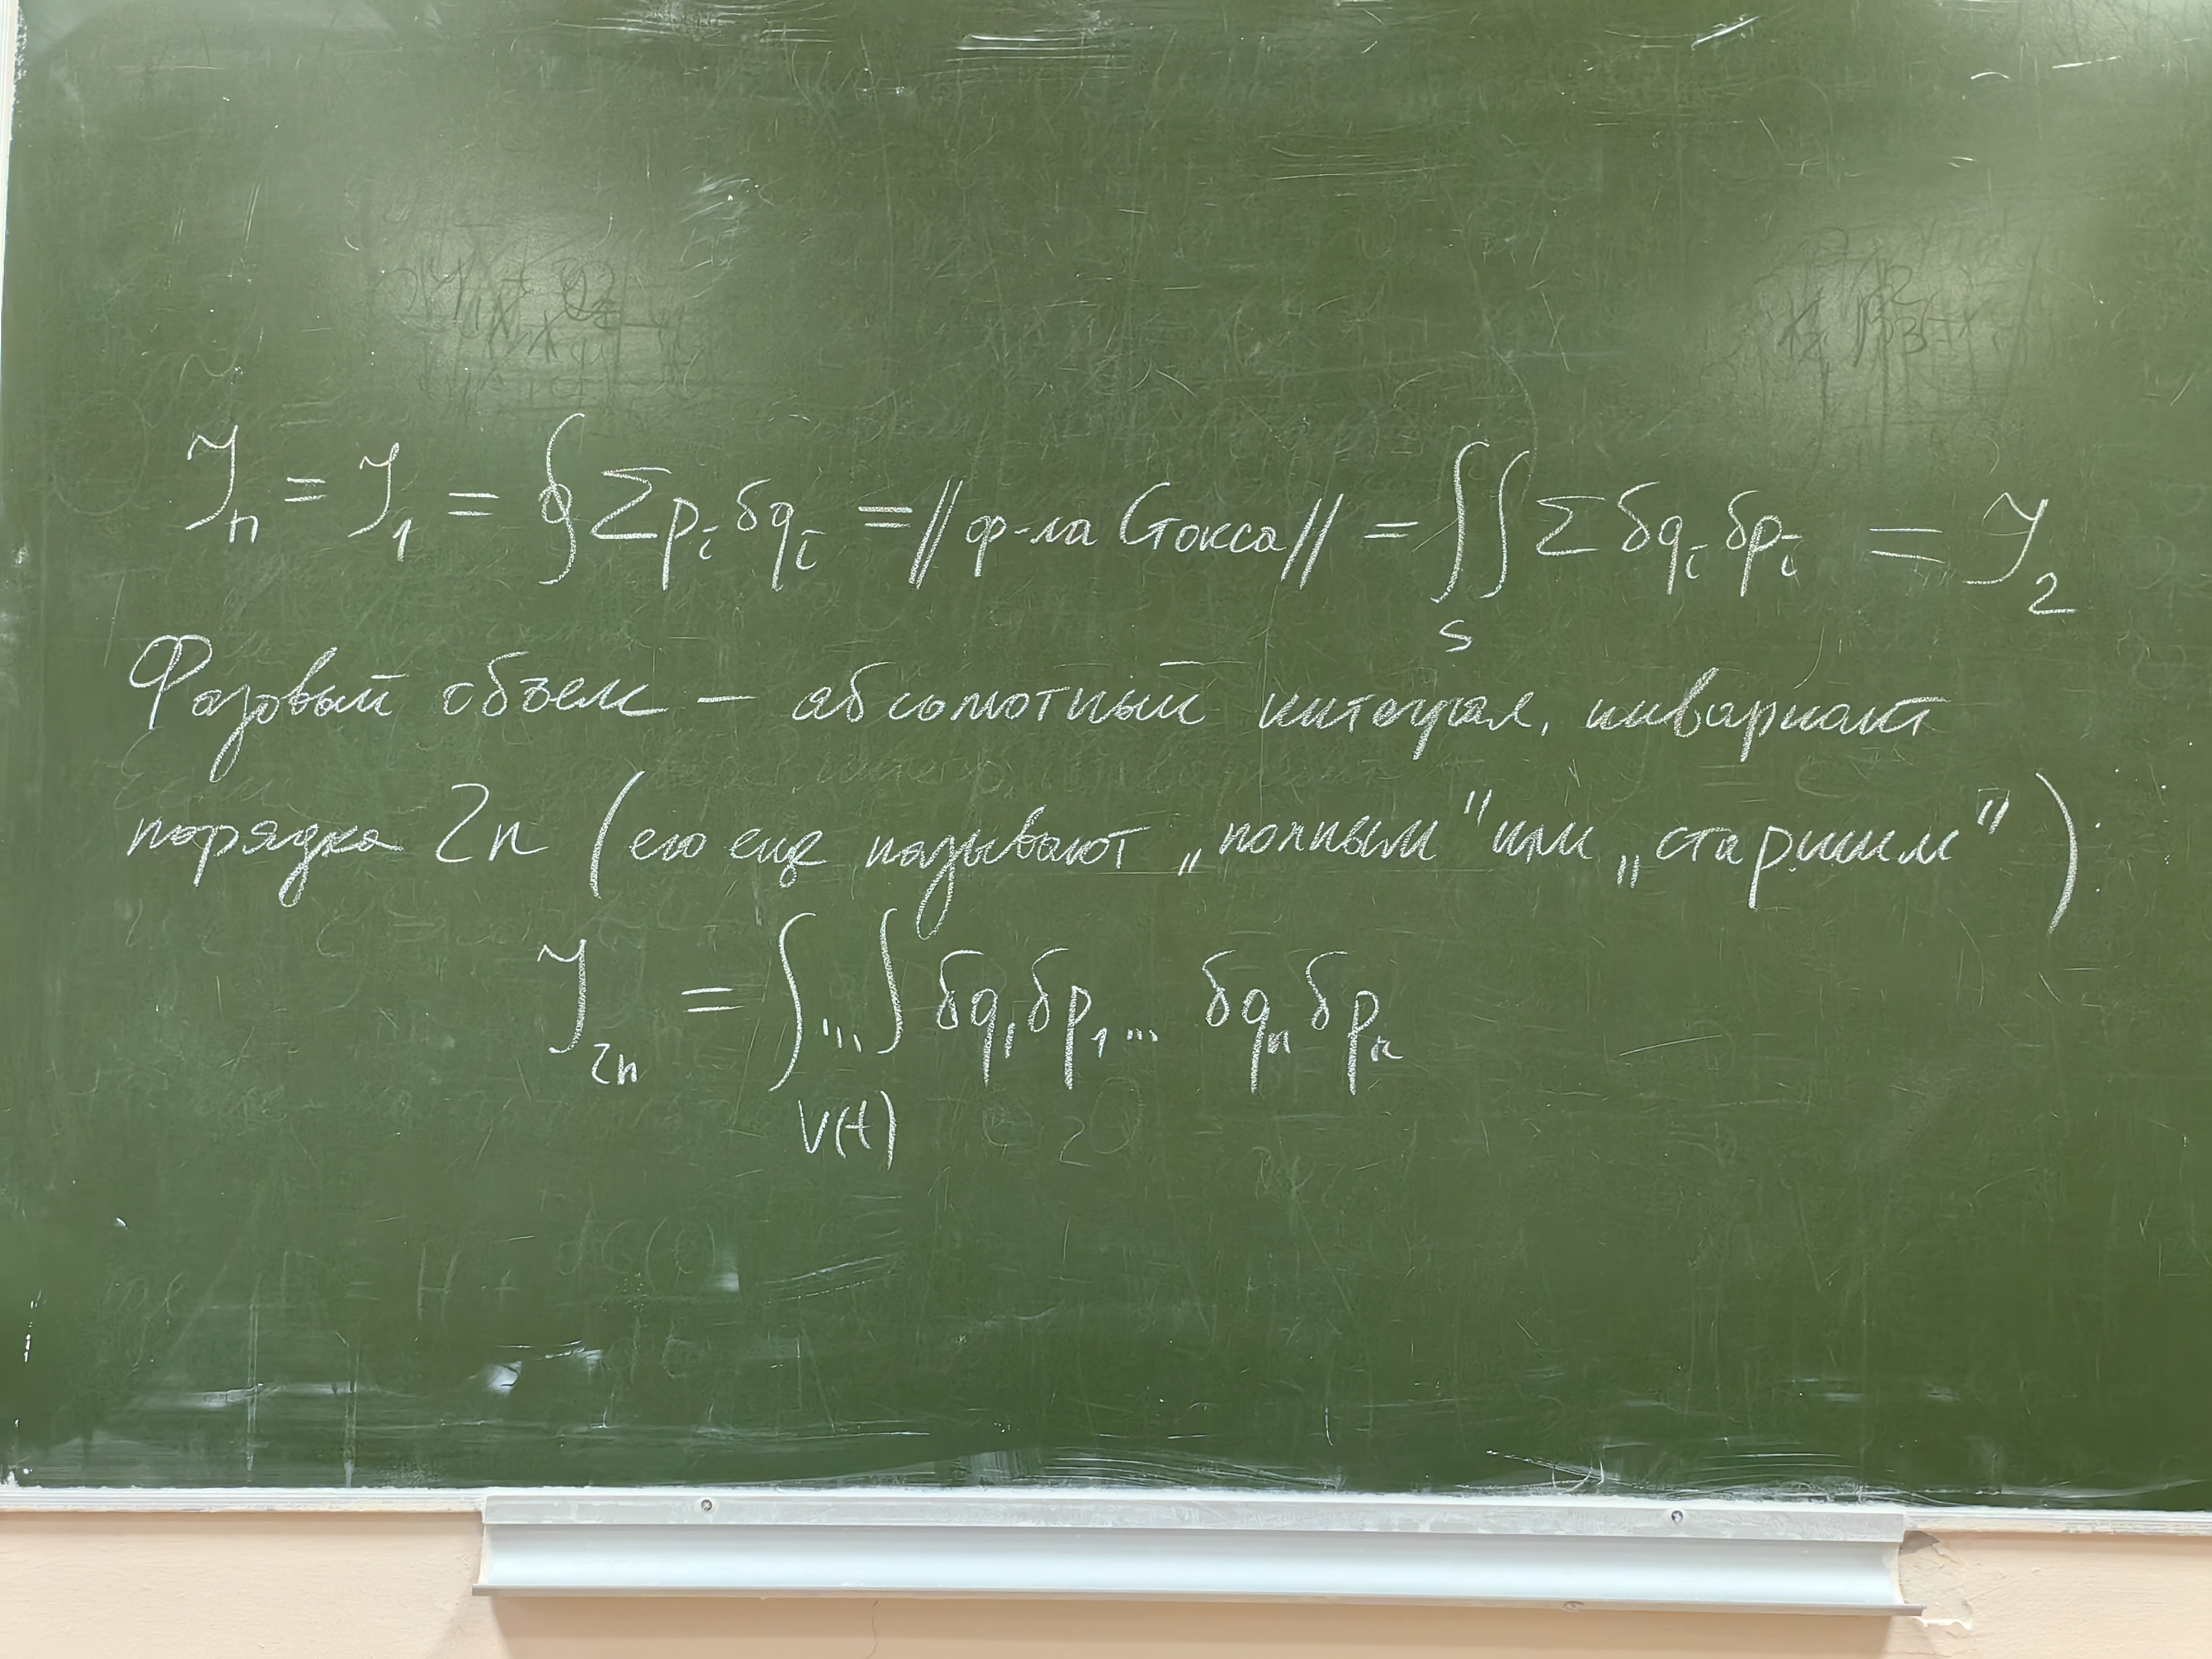 Jₙ = J₁ = ∮ Σ pᵢ δqᵢ = // ф-ла Стокса // = ∬ Σ δqᵢ δpᵢ = J₂
S
Фазовый объем – абсолютный интеграл. инвариант
порядка 2n (его еще называют „полным" или „старшим"):
J₂ₙ = ∫...∫ δq₁δp₁... δqₙδpₙ
V(t)